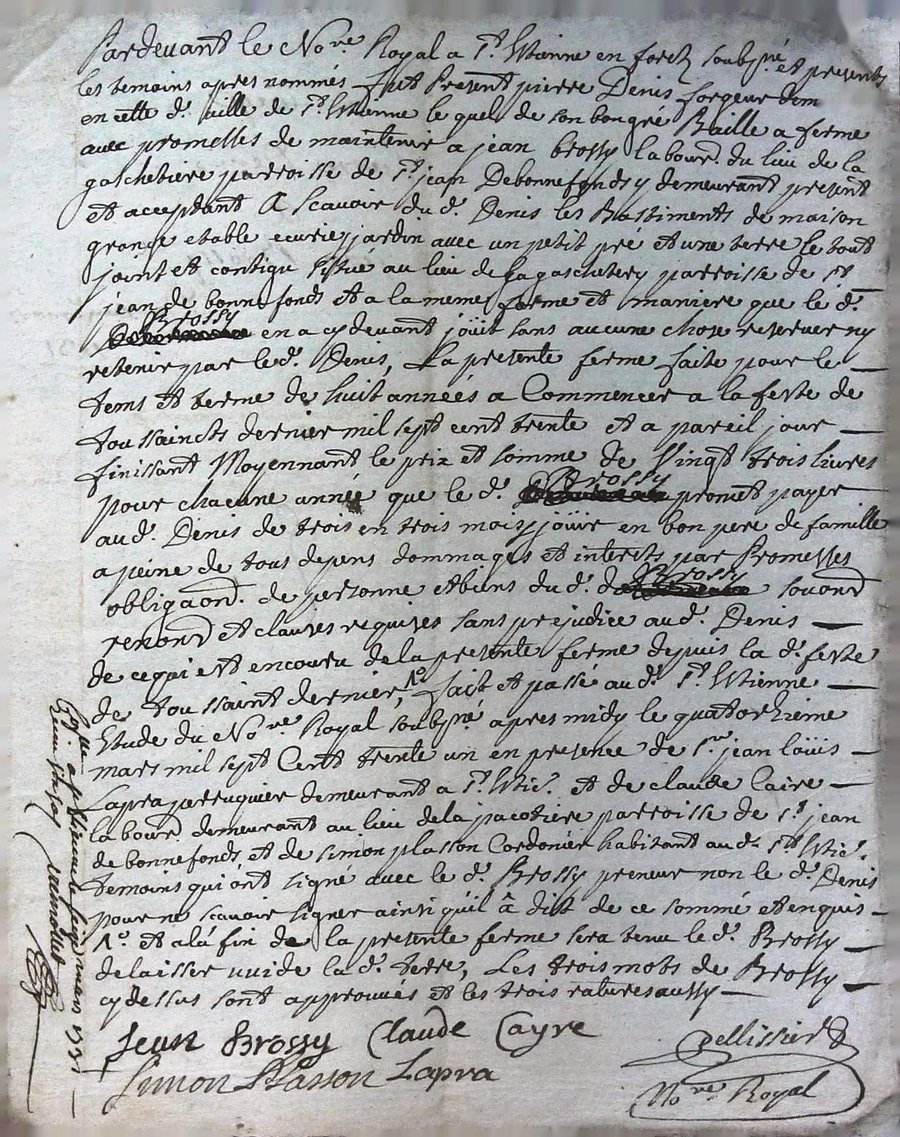 Pardevant le No.re Royal a S.t Etienne en forez soubsne et presents
les temoins apres nommés fut Present pierre Denis forgeur dem
en cette d. ville de S.t Etienne le quel de son bon gré Baille a ferme
avec promesses de maintenir a jean brossy labour. du lieu de la
gaschetiere parroisse de S.t jean Debonnefonds y demeurant present
et acceptant A scavoir du d. Denis les Bastiments de maison
grange etable ecurie jardin avec un petit pré et une terre le tout
joint et contigu situé au lieu de la gaschetiery parroisse de S.t
jean de bonnefonds et a la meme forme et maniere que le d.
Brossy en a cy devant jöüit sans aucune chose reserver ny
retenir par le d. Denis, La presente ferme faite pour le
tems et terme de huit années a Commencer a la feste de
toussaincts dernier mil sept cent trente et a pareil jour
finissant Moyennant le prix et somme de Vingt trois livres
pour chacune année que le d. Brossy promet payer
au d. Denis de trois en trois mois, jöüir en bon pere de famille
a peine de tous depens dommages et interets par Promesses
obligaōn. de personne et biens du d. Brossy soūon
renoñ et clauses requises sans prejudice au d. Denis
de ce qui est encouru de la presente ferme depuis la d. feste
de toussaint dernier, 1.o fait et passé au d. S.t Etienne
Etude du No.re Royal soubsné apres midy le quatorzieme
mars mil sept Cent trente un en presence de S.r jean loüis
Lapra perruquier demeurant a S.t Etie. et de claude Caire
labour demeurant au lieu de la jacotiere parroisse de S.t jean
de bonnefonds et de simon plasson Cordonier habitant au d. S.t Etie.
temoins qui ont signé avec le d. Brossy preneur non le d. Denis
pour ne scavoir signer ainsi quil â dict de ce sommé et enquis
1.o et a la fin de la presente ferme sera tenu le d. Brossy
delaisser vuide la d. terre, Les trois mots de Brossy
cy dessus sont approuvés et les trois ratures aussy
Jean Brossy Claude Cayre
Simon Plasson Lapra
Pellissier
No.re Royal
a S.t Etienne le seize mars 1731